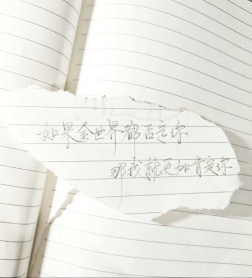 如果全世界都否定你
那我就更加肯定你